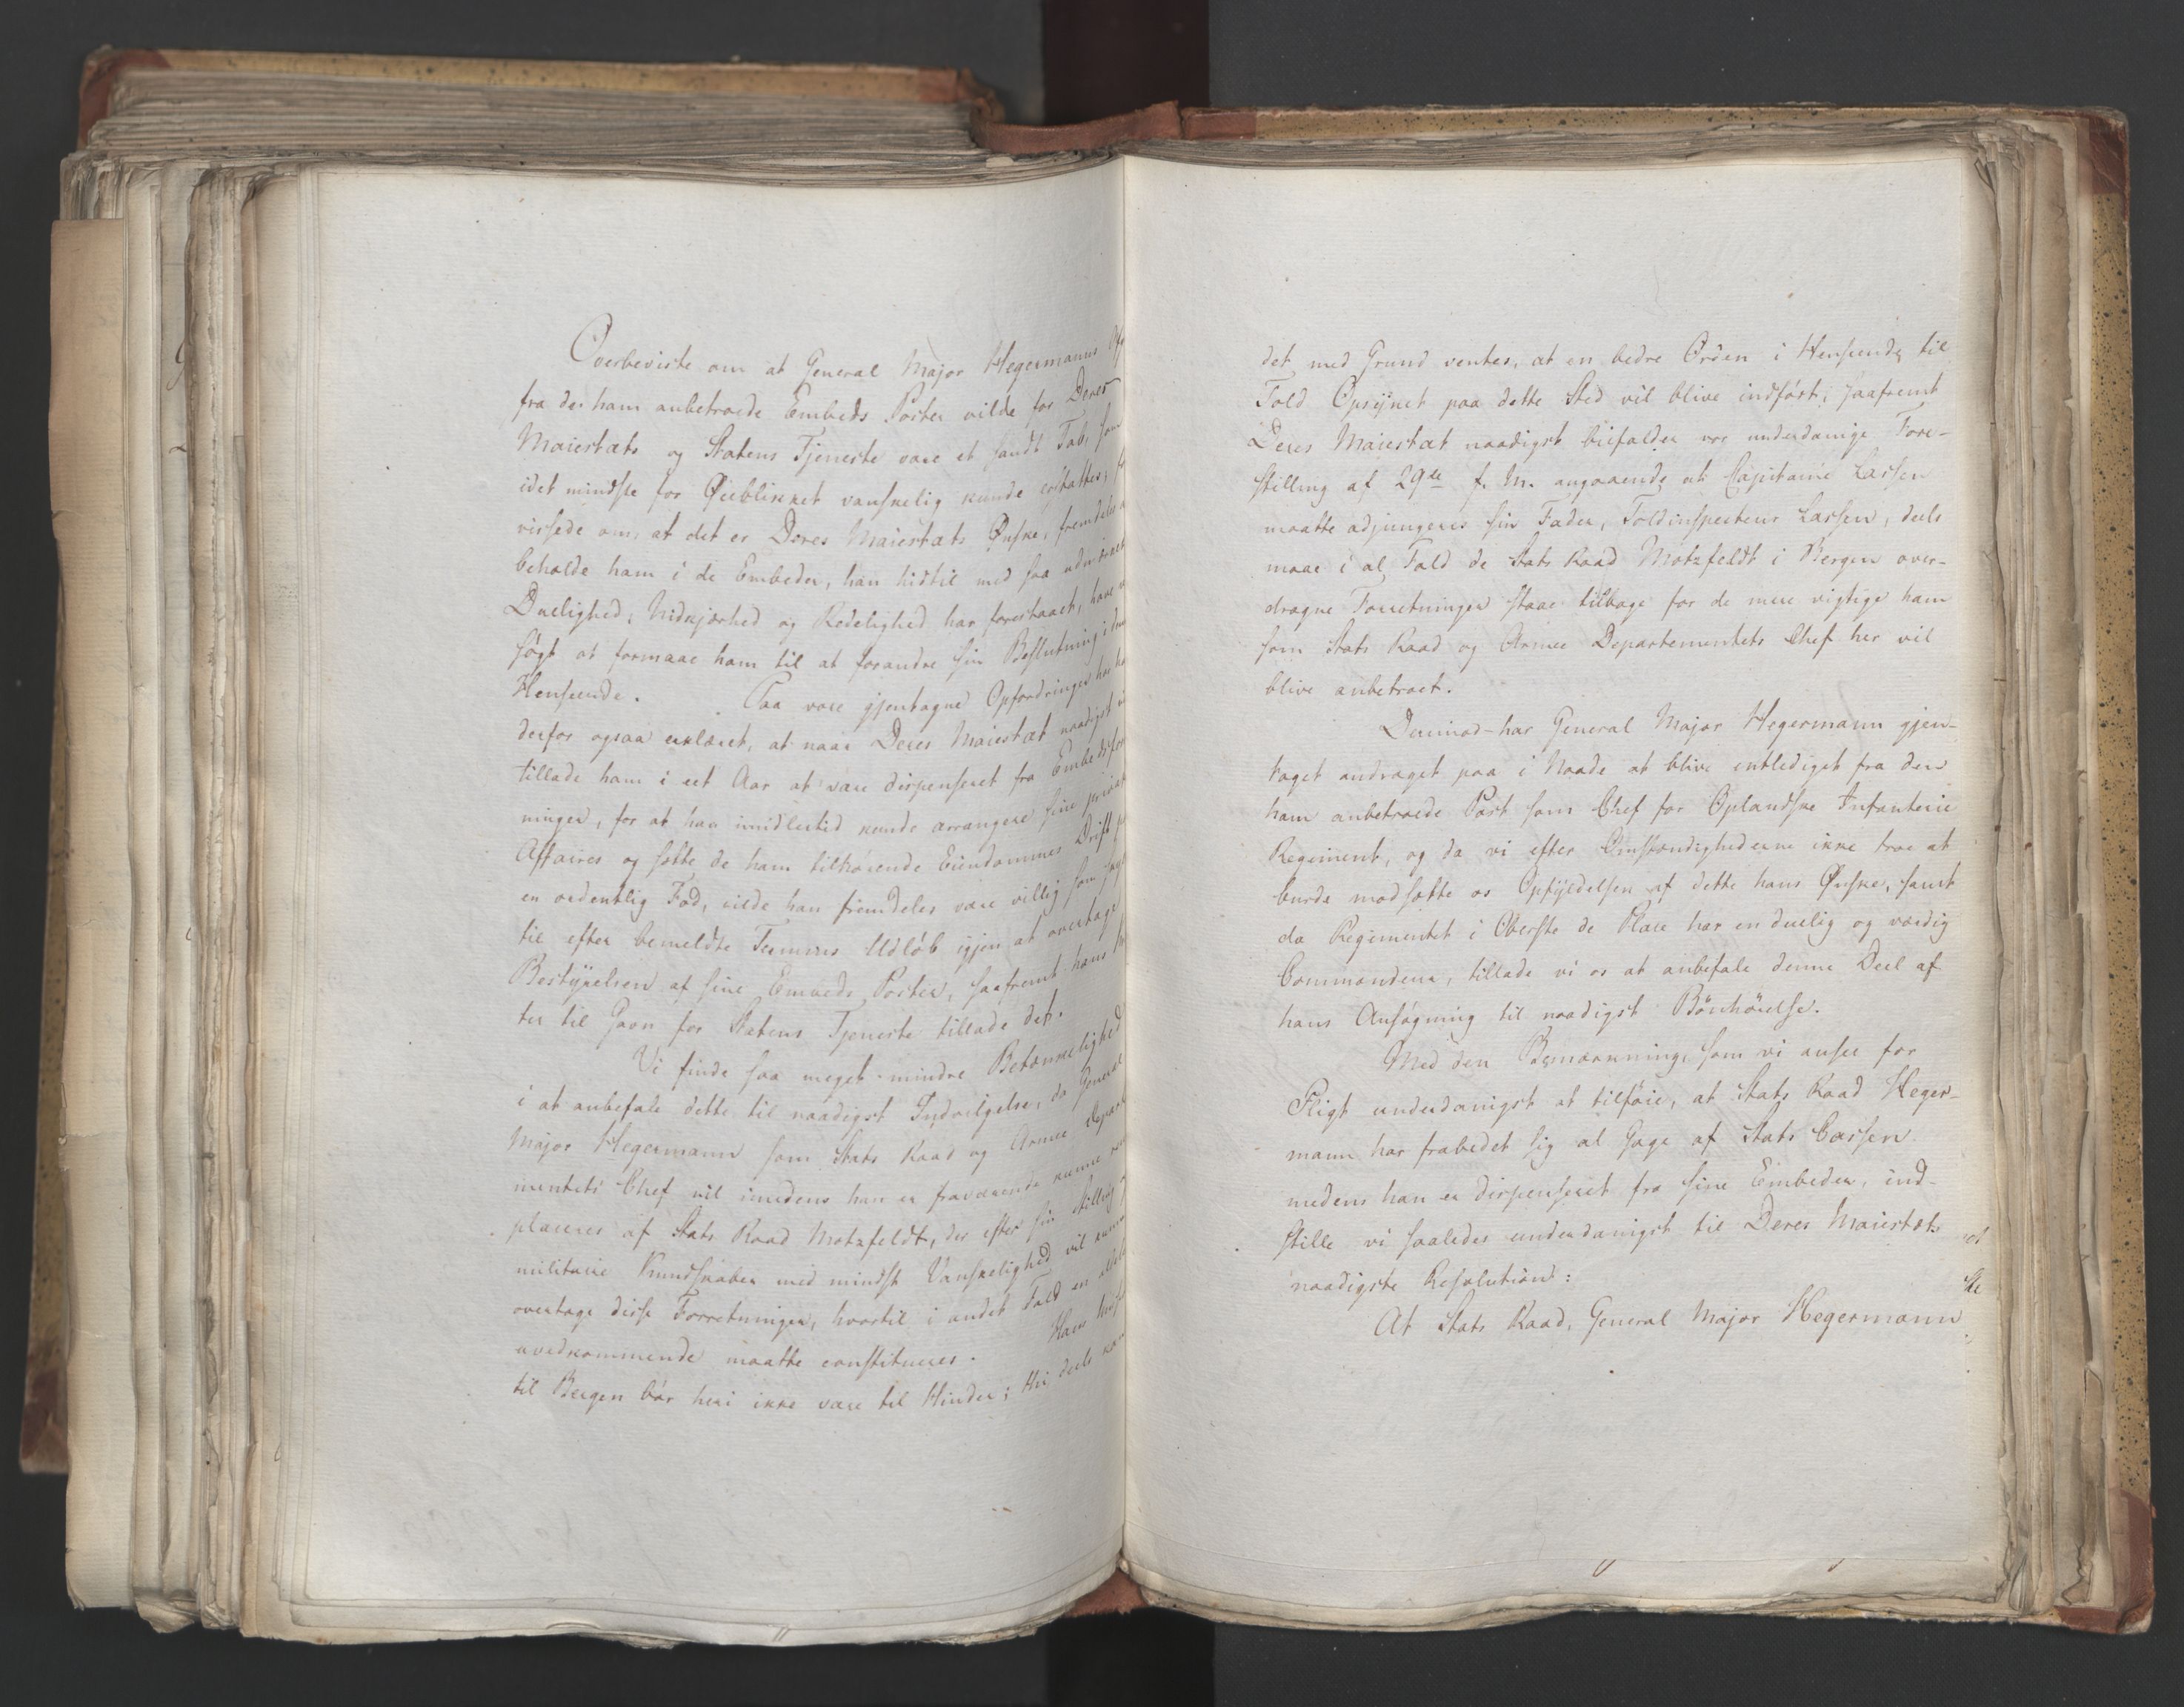 Overbeviste om at General Major Hegermanns
fra de ham anbetroede Embeds Poster vilde for Deres
Maiestæts og Statens Tjeneste være et sandt Tab, som
idet mindste for Øieblikket vanskelig kunde erstattes,
vissede om, at det er Deres Maiestæts Ønske, fremdeles
beholde ham i de Embeder, han hidtil med saa udmærket
Duelighed, Nidkjærhed og Redelighed har forestaaet, have
søgt at formaae ham til at forandre sin Beslutning i
Henseende. Paa vore gjentagne Opfordringer har
derfor ogsaa erklæret, at naar Deres Maiestæt naadigst
tillade ham i eet Aar at være dispenseret fra
ninger, for at han imidlertid kunde arrangere sine
Affairer og sætte de ham tilhørende Eiendommes Drift
en ordentlig Fod, vilde han fremdeles være villig som
til efter bemeldte Termins Udløb igjen at overtage
Bestÿrelsen af sine Embeds Poster, saafremt hans
ter til Gavn for Statens Tjeneste tillade det.
Vi finde saa meget mindre Betænkelighed
i at anbefale dette til naadigst Indvilgelse, da General
Major Hegermann som Stats Raad og Armee
mentets Chef vil imedens han er fraværende kunne
placeres af Stats Raad Motzfeldt, der efter sin Stilling
militaire Kundskaber med mindst Vanskelighed vil kunne
overtage disse Forretninger, hvortil i andet Fald en
uvedkommende maatte constitueres. Hans
til Bergen bør heri ikke være til Hinder; thi deels kan
det med Grund ventes, at en bedre Orden i Henseende til
Told Opsÿnet paa dette Sted vil blive indført, saafremt
Deres Maiestæt naadigst bifalder vor underdanige Fore-
stilling af 29de f. M. angaaende at Capitaine Lassen
maatte adjungeres sin Fader, Toldinspecteur Lassen, deels
maae i al Fald de Stats Raad Motzfeldt i Bergen over-
dragne Forretninger staae tilbage for de mere vigtige ham
som Stats Raad og Armee Departementets Chef her vil
blive anbetroet.
Derimod har General Major Hegermann gjen-
taget andraget paa i Naade at blive entlediget fra den
ham anbetroede Post som Chef for Oplandske Infanterie
Regiment, og da vi efter Omstændighederne ikke troe at
burde modsætte os Opfÿldelsen af dette hans Ønske, samt
da Regimentet i Oberste de Place har en duelig og værdig
Commandeur, tillade vi os at anbefale denne Deel af
hans Ansøgning til naadigst Bönhörelse.
Med den Bemærkning, som vi ansee for
Pligt underdanigst at tilføie, at Stats Raad Heger-
mann har frabedet sig al Gage af Stats Cassen
medens han er dispenseret fra sine Embeder, ind-
stille vi saaledes underdanigst til Deres Maiestæts
naadigste Resolution:
At Stats Raad, General Major Hegermann